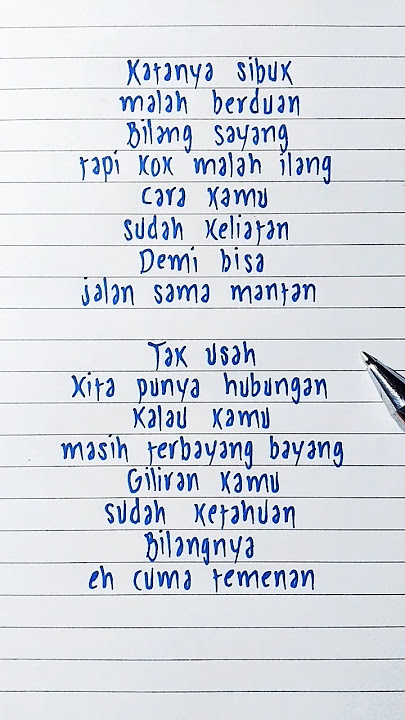 Katanya sibuk
malah berduan
Bilang sayang
tapi kok malah ilang
cara kamu
sudah keliatan
Demi bisa
jalan sama mantan
Tak usah
kita punya hubungan
kalau kamu
masih terbayang bayang
Giliran kamu
sudah ketahuan
Bilangnya
eh cuma temenan